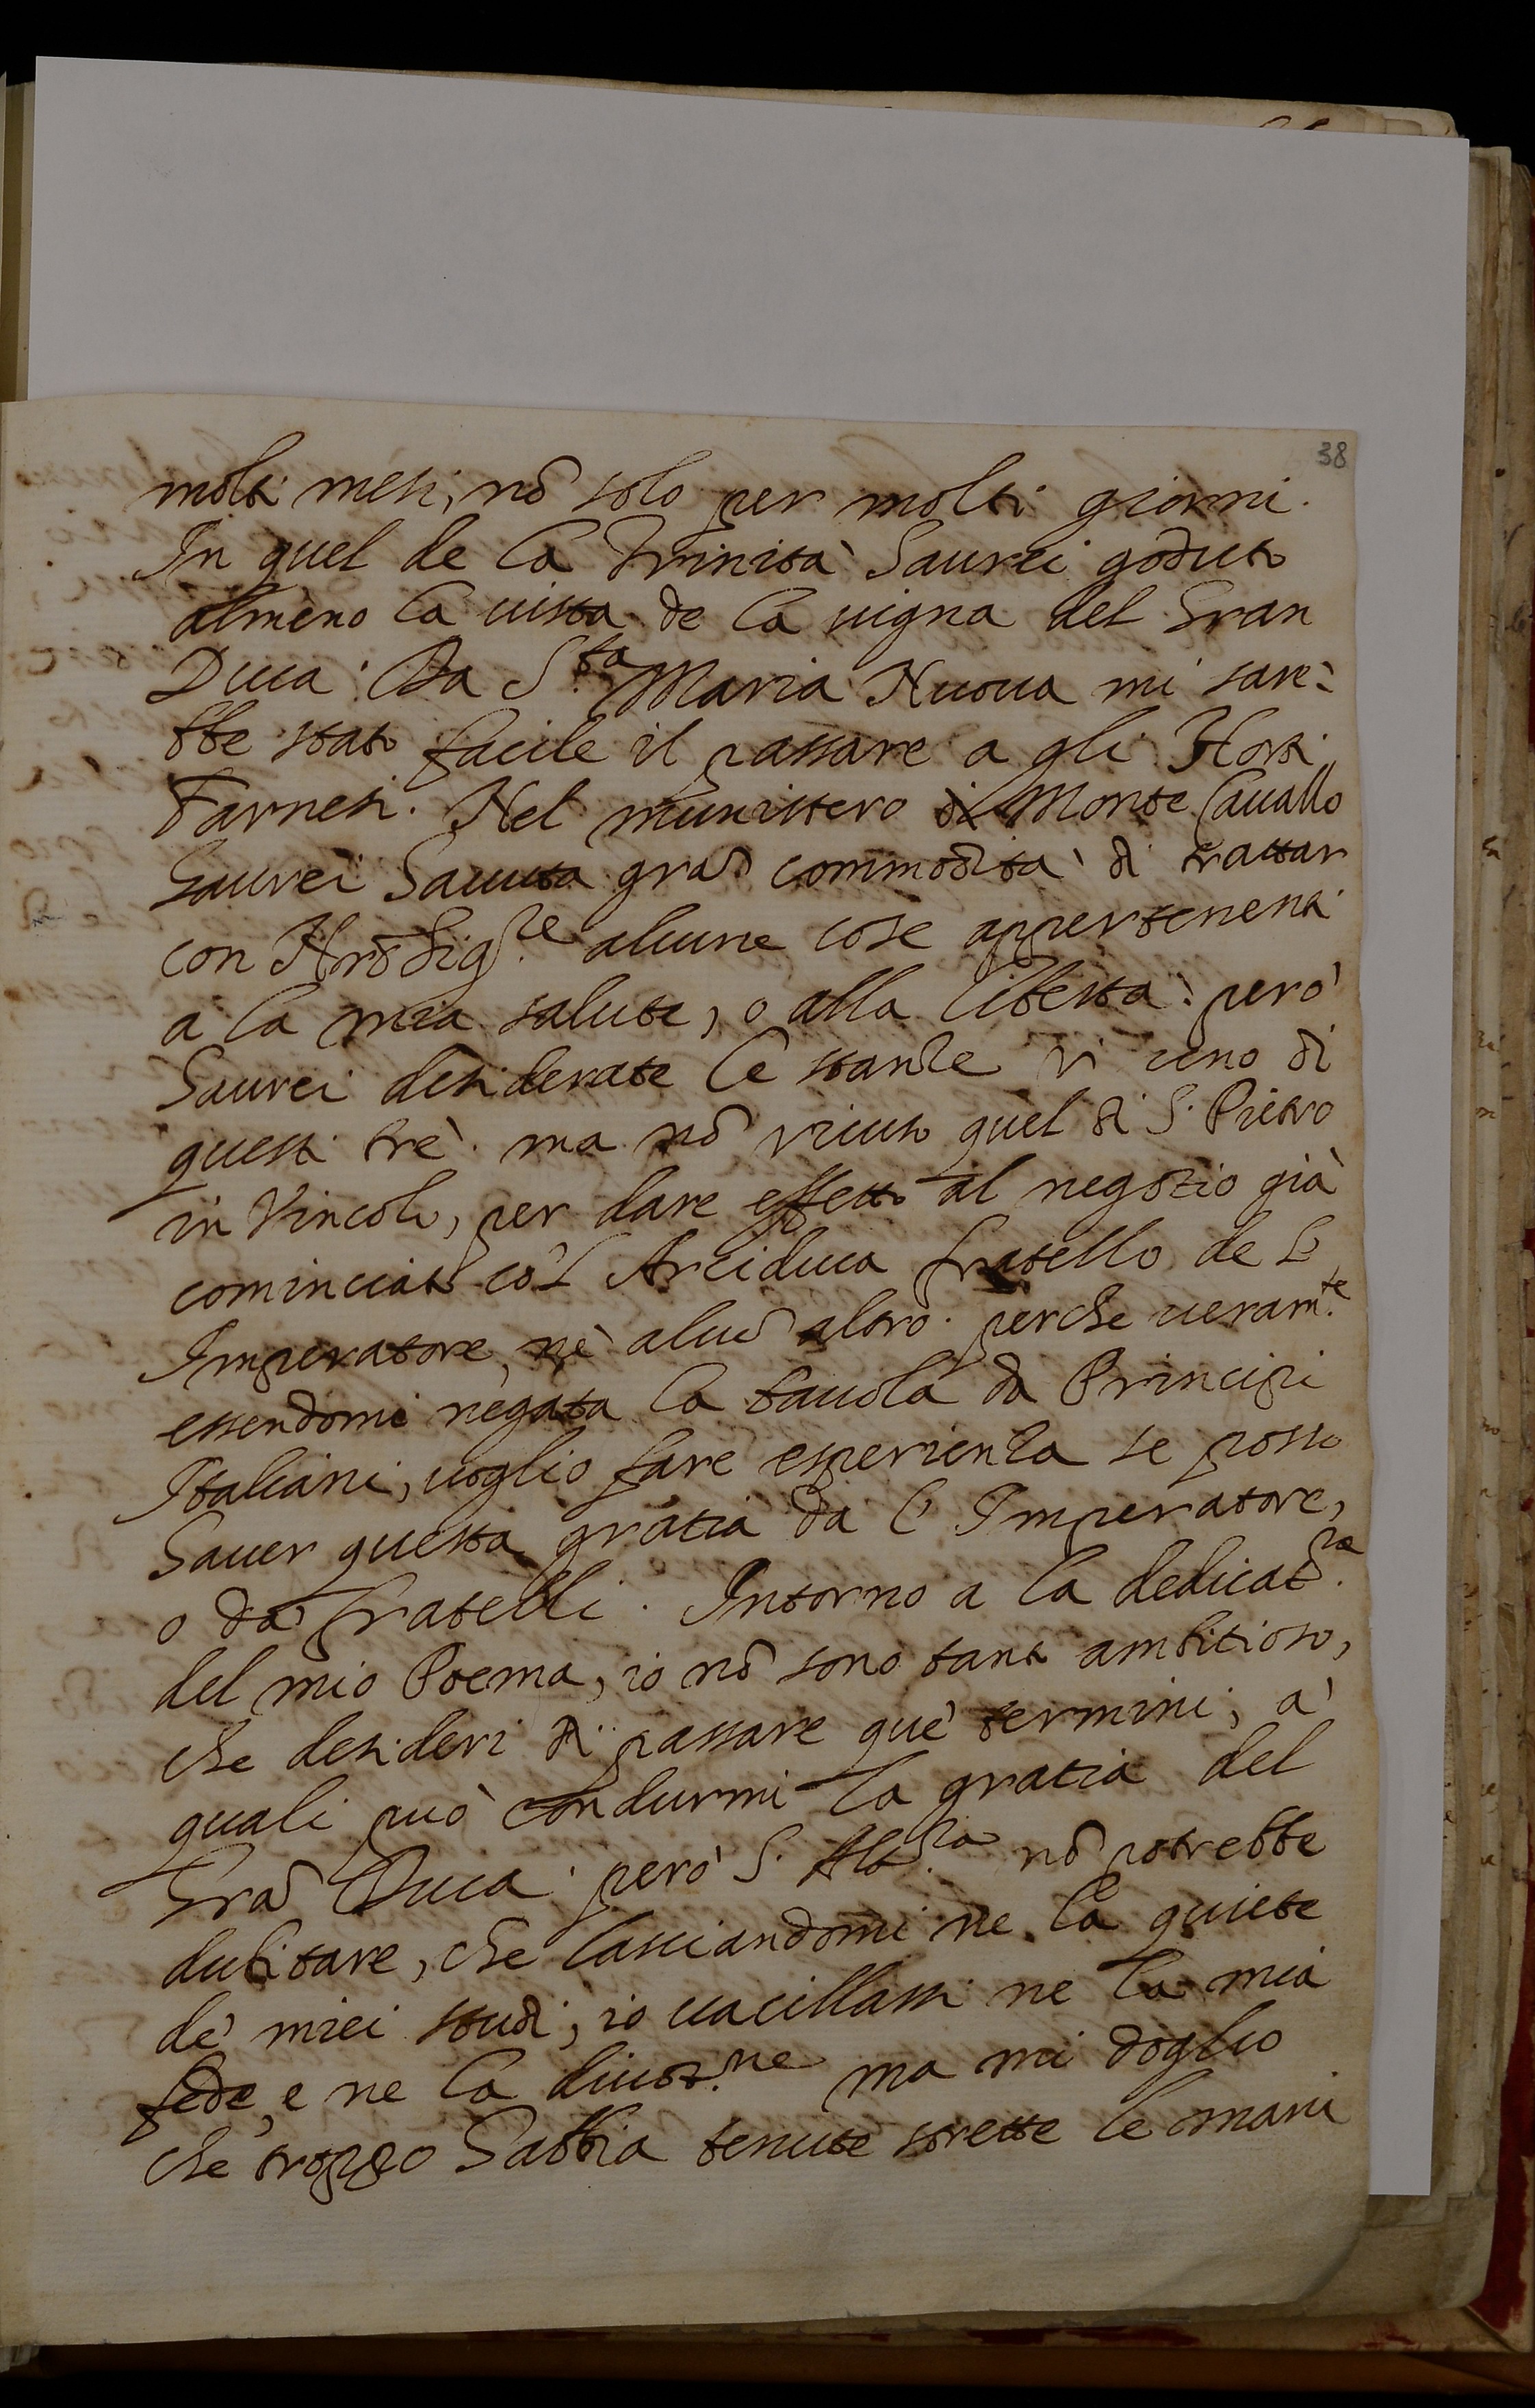 38
molti mesi, nō solo per molti giorni.
In quel de la Trinità haurei goduto
almeno la uista de la uigna del Gran
Duca. Da S.ta Maria Nuoua mi sare:
bbe stato facile il passare a gli Horti
Farnesi. Nel munistero di Monte Cauallo
haurei hauuta grād commodità di trattar
con Nrō Sig.re alcune cose appertenenti
a la mia salute, o alla libertà: però
haurei desiderate le stanze in uno di
questi trè. ma nō riuuto quel di S. Pietro
in Vincoli, per dare effetto al negotio già
cominciato co'l Arciduca fratello de l'
Imperatore, nè alcū altro. perche ueram.te
essendomi negata la tauola da Principi
Italiani, uoglio fare esperienza se posso
hauer questa gratia da l'Imperatore,
o da' fratelli. Intorno a la dedicat.ne
del mio Poema, io nō sono tanto ambitioso,
che desideri di passare que' termini, a'
quali può condurmi la gratia del
Grā Duca. però S. Alt.za nō potrebbe
dubitare, che lasciandomi ne la quiete
de' miei studi, io uacillassi ne la mia
fede, e ne la diuot.ne ma mi doglio
che troppo habbia tenute strette le mani